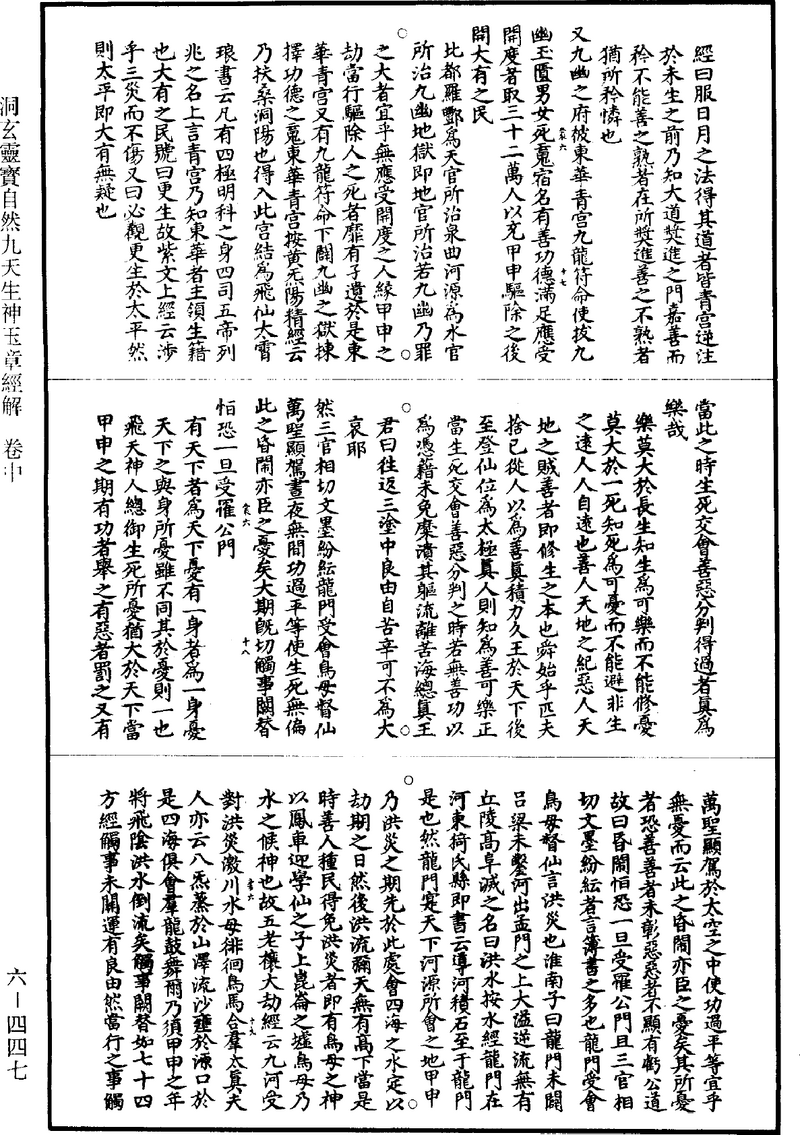 經曰服日月之法得其道者皆青宮逆注
於未生之前乃知大道獎進之門嘉善而
矜不能善之孰者在所獎進善之不熟者
猶所矜憐也
又九幽之府被東華青宮九龍符命使拔九
幽玉匱男女死魂宿名有善功德滿足應受
開度者取三十二萬人以充甲申驅除之後
開大有之民
比都羅酆爲天官所治泉曲河源爲水官
所治九幽地獄即地官所治若九幽乃罪
之大者宜乎無應受開度之人緣甲申之
劫當行驅除人之死者靡有孑遺於是東
華青宮又有九龍符命下闢九幽之獄揀
擇功德之魂東華青宮按黃炁陽精經云
乃扶桑洞陽也得入此宮結爲飛仙大霄
琅書云凡有四極明科之身四司五帝列
兆之名上言青宮乃知東華者主領生籍
也大有之民號曰更生故紫文上經云涉
乎三災而不傷又曰必觀更生於太平然
則太平即大有無疑也
當此之時生死交會善惡分判得過者眞爲
樂哉
樂莫大於長生知生爲可樂而不能修憂
莫大於一死知死爲可憂而不能避非生
之遠人人自遠也善人天地之紀惡人天
地之賊善者即修生之本也舜始乎匹夫
捨已從人以爲善眞積力久王於天下後
至登仙位爲太極眞人則知爲善可樂正
當生死交會善惡分判之時若無善功以
爲憑藉未免糜潰其軀流離苦海總眞王
君曰往返三塗中良由自苦辛可不爲大
哀耶
然三官相切文墨紛紜龍門受會鳥母督仙
萬聖顯駕晝夜無閒功過平等使生死無偏
此之昏閙亦臣之憂矣大期旣切觸事闕替
怕恐一旦受罹公門
有天下者爲天下憂有一身者爲一身憂
天下之與身所憂雖不同其於憂則一也
飛天神人總御生死所憂猶大於天下當
甲申之期有功者舉之有惡者罰之又有
萬聖顯駕於太空之中使功過平等宜乎
無憂而云此之昏閙亦臣之憂矣其所憂
者恐善善者未彰惡惡者不顯有虧公道
故曰昏閙怕恐一旦受罹公門且三官相
切文墨紛紜者言簿書之多也龍門受會
鳥母督仙言洪災也淮南子曰龍門未闢
呂梁未鑿河出孟門之上大溢逆流無有
丘陵高阜滅之名曰洪水按水經龍門在
河東猗氏縣即書云導河積石至于龍門
是也然龍門寔天下河源所會之地甲申
乃洪災之期先於此處會四海之水定以
劫期之日然後洪流彌天無有高下當是
時善人種民得免洪災者即有鳥母之神
以鳳車迎學仙之子上崑崙之墟鳥母乃
水之候神也故五老穰大劫經云九河受
對洪災激川水母徘徊鳥馬合羣太眞夫
人亦云八炁蒸於山澤流沙壅於源口於
是四海俱會羣龍鼓舞爾乃須甲申之年
將飛陰洪水倒流矣觸事闕替如七十四
方經觸事未開運有良由然當行之事觸
洞玄靈寶自然九天生神玉章經解 卷中
六－四四七